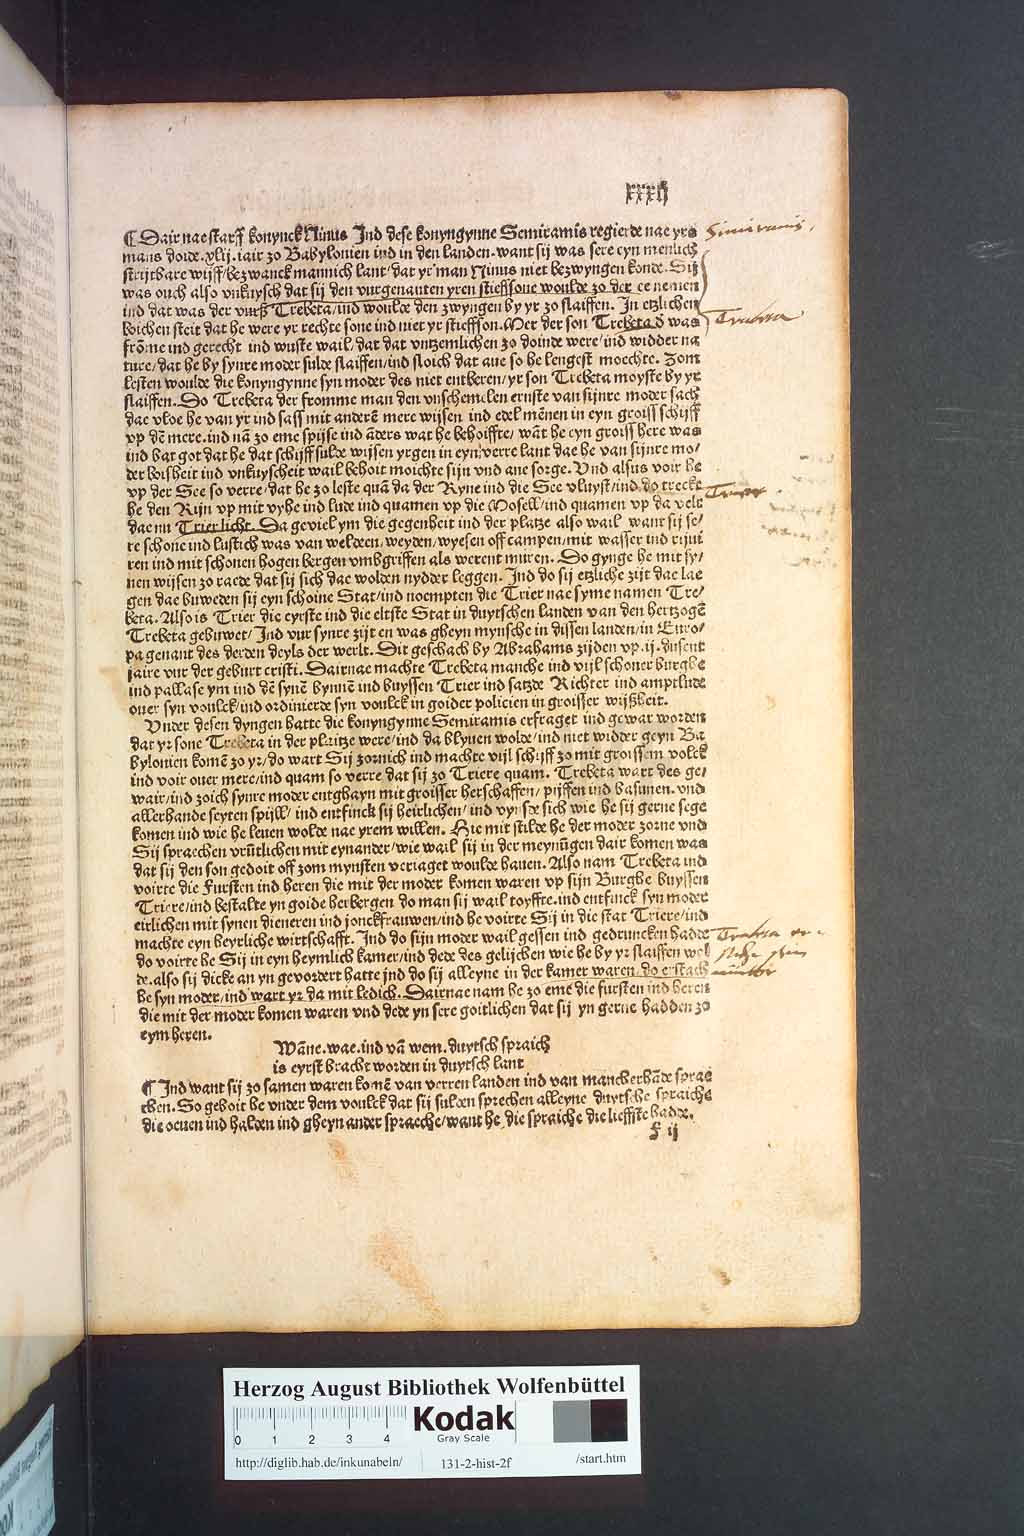 xxxij
¶ Dair nae starff konynck Ninus Jnd dese konyngynne Semiramis regierde nae yrs
mans doide .xlij. iair zo Babylonien ind in den landen. want sij was sere eyn menlich
strijtbare wijff/bezwanck mannich lant/dat yr man Ninus niet bezwyngen konde. Sij
was ouch also vnkuysch dat sij den vurgenanten yren stieffsone woulde zo der ee nemen
ind dat was der vurß Trebeta/ind woulde den zwyngen by yr zo slaiffen. Jn etzlichen
boichen steit dat he were yr rechte sone ind niet yr stieffson. Mer der son Trebeta d was
frõme ind gerecht ind wuste wail/dat dat vntzemlichen zo doinde were/ind widder na
ture/dat he by synre moder sulde slaiffen/ind sloich dat aue so he lengest moechte. Zom
lesten woulde die konyngynne syn moder des niet entberen/yr son Trebeta moyste by yr
slaiffen. Do Trebeta der fromme man den vnschemelen ernste van sijnre moder sach
dae vloe he van yr ind sass mit anderẽ mere wijsen ind edel mẽnen in eyn groiss schijff
vp dẽ mere. ind nã zo eme spijse ind ãders wat he behoiffte/ wãt he eyn groiss here was
ind bat got dat he dat schijff sulde wijsen yrgen in eyn verre lant dae he van sijnre mo/
der boisheit ind vnkuyscheit wail behoit moichte sijn vnd ane sorge. Vnd alsus voir he
vp der See so verre/dat he zo leste quã da der Ryne ind die See vluyst/ind do trecke
he den Rijn vp mit vyhe ind lude ind quamen vp die Mosell/ind quamen vp da velt
dae nu Trier licht. Da geviel ym die gegenheit ind der platze also wail want sij se/
re schone ind lustich was van weldeen, weyden, wyesen off campen/mit wasser ind riuui
ren ind mit schonen hogen bergen vmbgriffen als werent muren. Do gynge he mit sy/
nen wijsen zo raede dat sij sich dae wolden nydder leggen. Jnd do sij etzliche zijt dae lae
gen dae buweden sij eyn schoine Stat/ind noempten die Trier nae syme namen Tre/
beta. Also is Trier die eyrste ind die eltste Stat in duytschen landen van den hertzogẽ
Trebeta gebuwet/ Jnd vur synre zijt en was gheyn mynsche in dissen landen/in Euro/
pa genant des derden deyls der werlt. Dit geschach by Abrahams zijden vp .ij. dusent
jaire vur der geburt cristi. Dairnae machte Trebeta manche ind vijl schoner burghe
ind pallase ym ind dẽ synẽ bynnẽ ind buyssen Trier ind satzde Richter ind amptlude
ouer syn voulck/ind ordinierde syn voulck in goider policien in groisser wijßheit.
Vnder desen dyngen hatte die konyngynne Semiramis erfraget ind gewar worden
dat yr sone Trebeta in der plaitze were/ind da blyuen wolde/ind niet widder geyn Ba
bylonien komẽ zo yr/do wart Sij zornich ind machte vijl schijff zo mit groissem volck
ind voir ouer mere/ind quam so verre dat sij zo Triere quam. Trebeta wart des ge/
wair/ind zoich synre moder entghayn mit groisser herschaffen/ pijffen ind basunen. vnd
allerhande seyten spijll/ ind entfinck sij heirlichen/ ind vyrsde sich wie he sij gerne sege
komen ind wie he leuen wolde nae yrem willen. Hie mit stilde he der moder zorne vnd
Sij spraechen vrũtlichen mit eynander/wie wail sij in der meynũgen dair komen was
dat sij den son gedoit off zom mynsten veriaget woulde hauen. Also nam Trebeta ind
voirte die Fursten ind heren die mit der moder komen waren vp sijn Burghe buyssen
Triere/ind bestalte yn goide herbergen do man sij wail toyffte. ind entfinck syn moder
eirlichen mit synen dieneren ind jonckfrauwen/ind he voirte Sij in die stat Triere/ind
machte eyn heyrliche wirtschafft. Jnd do sijn moder wail gessen ind gedruncken hadde
do voirte he Sij in eyn heymlich kamer/ind dede des gelijchen wie he by yr slaiffen wol
de. also sij dicke an yn gevordert hatte jnd do sij alleyne in der kamer waren/do erstach
he syn moder/ind wart yr da mit ledich. Dairnae nam he zo eme die fursten ind heren
die mit der moder komen waren vnd dede yn sere goitlichen dat sij yn gerne hadden zo
eym heren.
Wãne. wae. ind vã wem. duytsch spraich
is eyrst bracht worden in duytsch lant
¶ Jnd want sij zo samen waren komẽ van verren landen ind van mancherhãde sprae
chen. So geboit he vnder dem voulck dat sij sulden sprechen alleyne duytsche spraiche
die oeuen ind halden ind gheyn ander spraeche/want he die spraiche die lieffste hadde.
F ij
Simiramis.
Trabeta
Trier
Trabeta
Herzog August Bibliothek Wolfenbüttel
0 1 2 3 4
Kodak
Gray Scale
http://diglib.hab.de/inkunabeln/ 131-2-hist-2f /start.htm